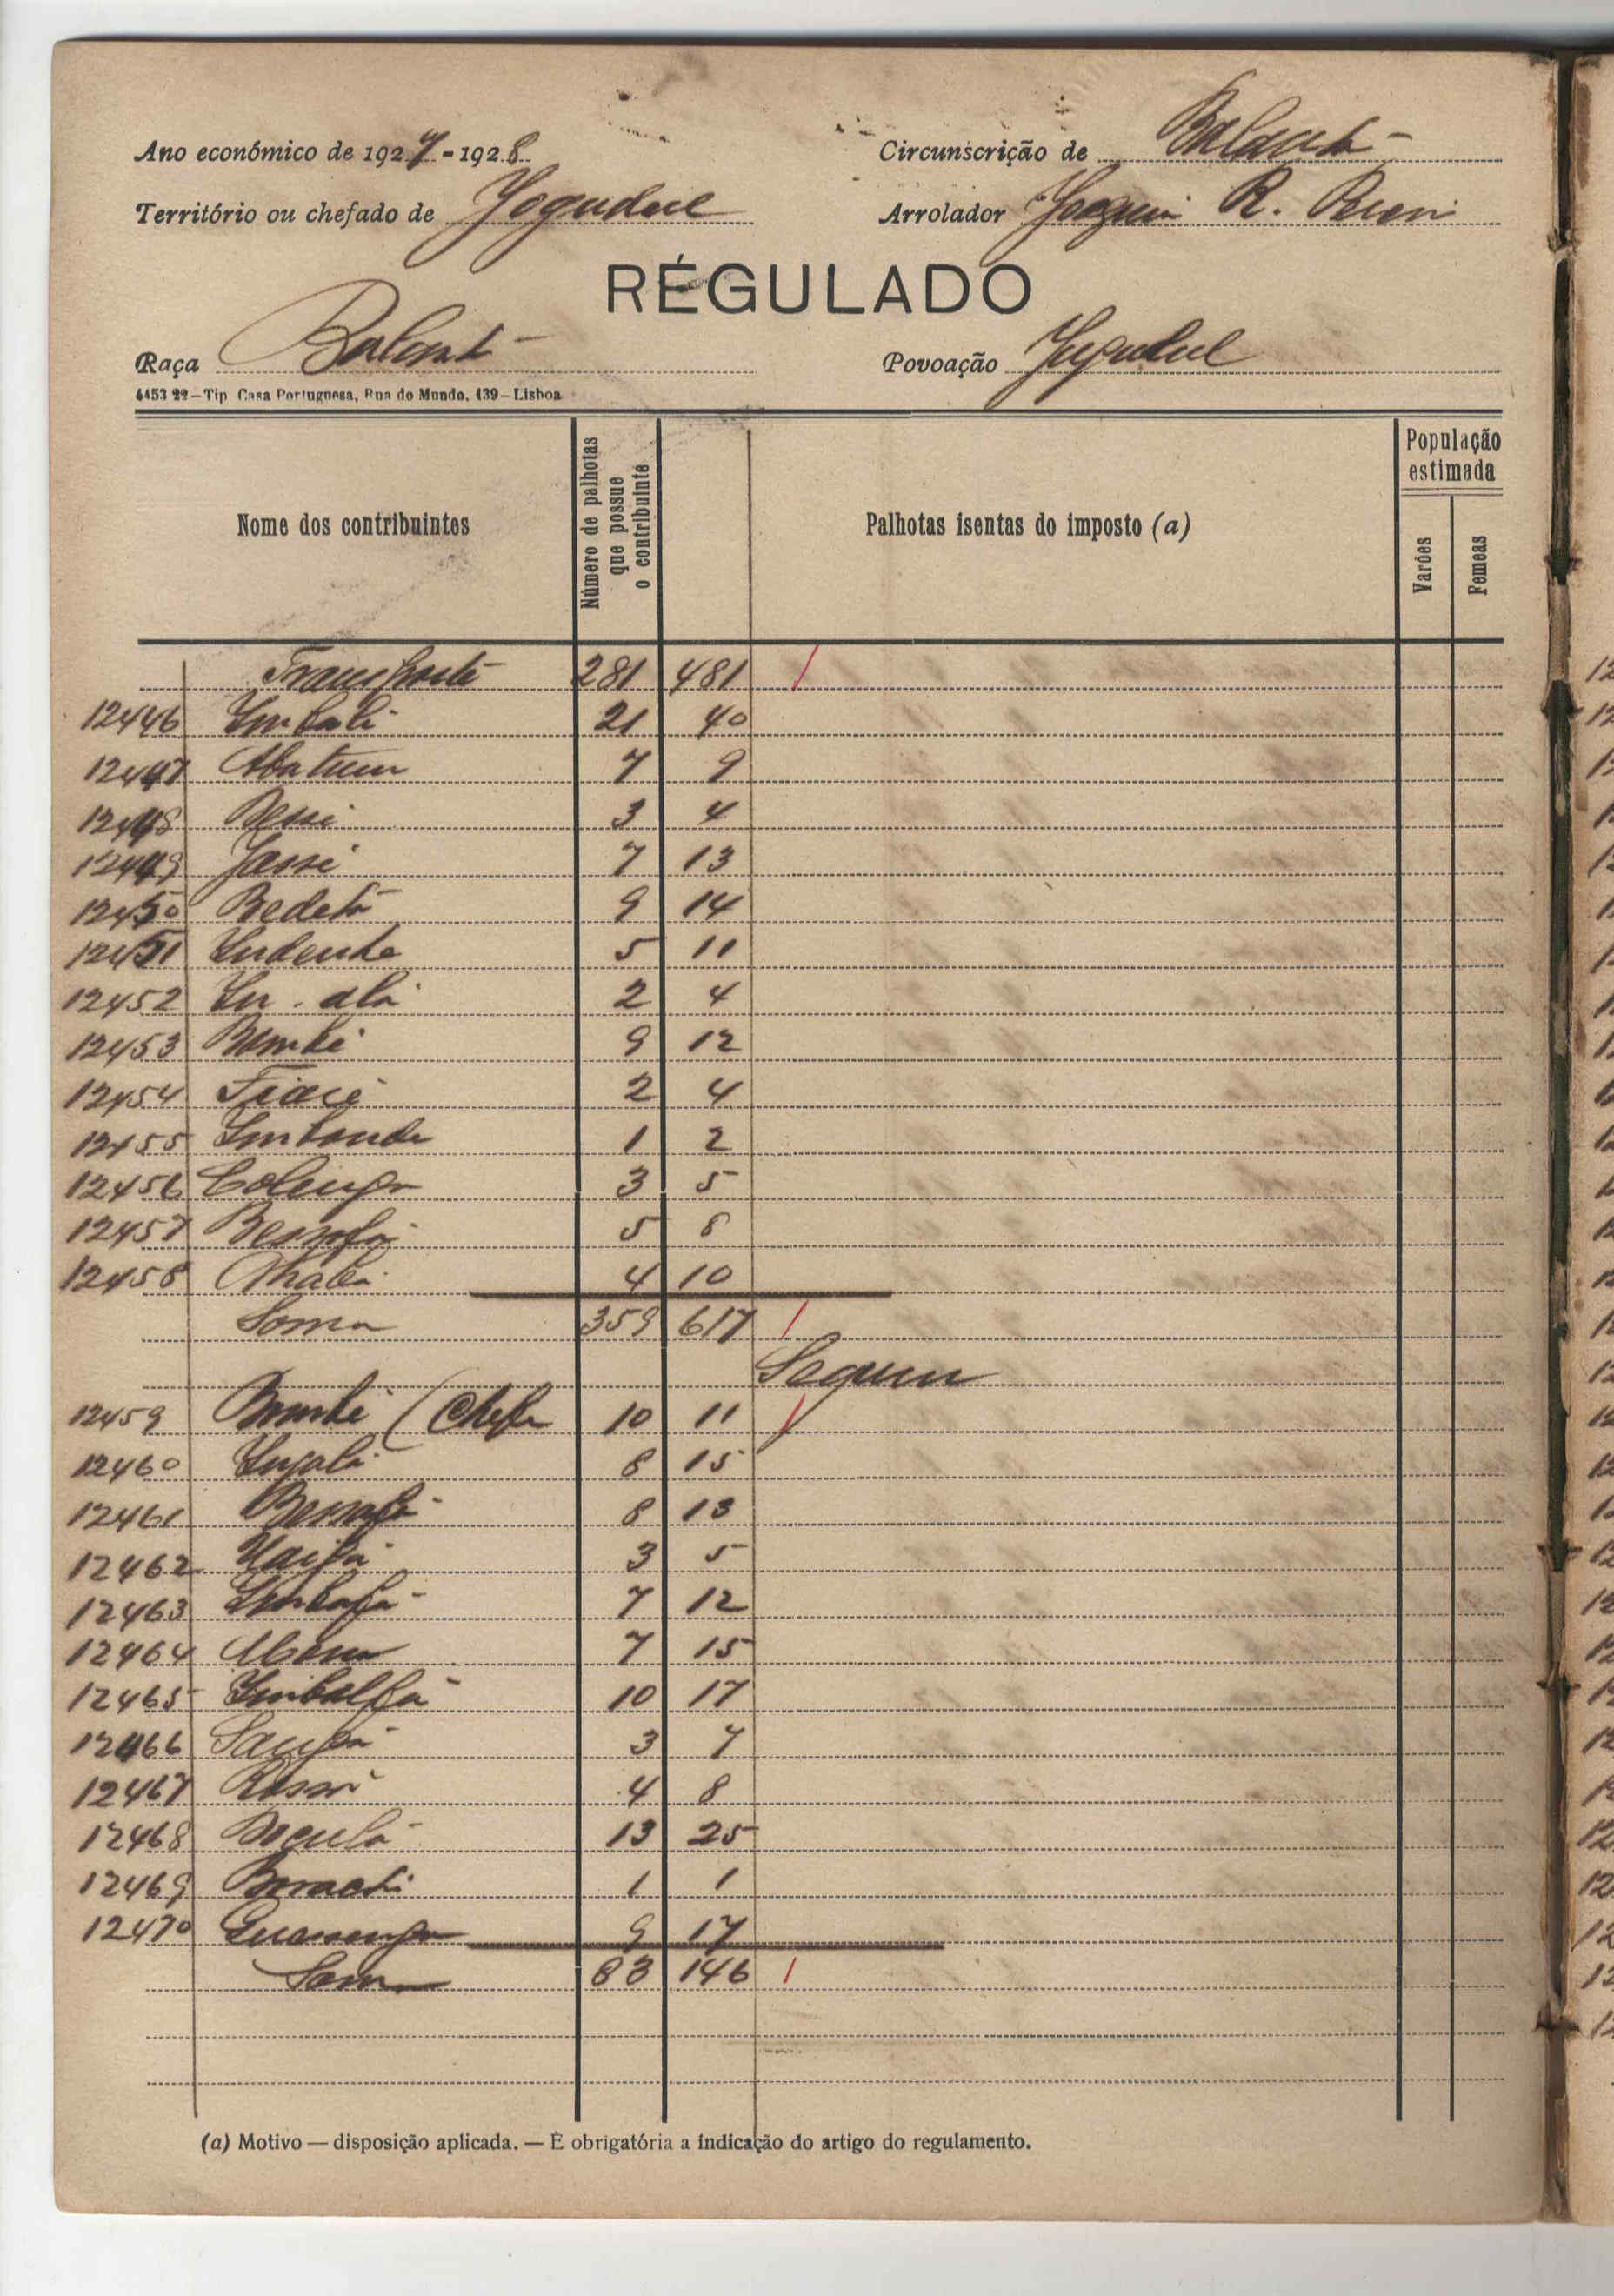 Ano económico de 1927-1928
Circunscrição de Balanta
Território ou chefado de Jogudul
Arrolador Joaquim R.
RÉGULADO
Raça Balanta
Povoação Jugudul
4453 22—Tip. Casa Portuguesa, Rua do Mundo, 139—Lisboa
Nome dos contribuintes
Número de palhotas que possue o contribuinte
Palhotas isentas do imposto (a)
População estimada
Varões
Femeas
Transporte 281 481
12446 Imbali 21 40
12447 7 9
12448 Bessi 3 4
12449 Jassi 7 13
12450 Bedetá 9 14
12451 Indenhe 5 11
12452 In-alá 2 4
12453 Bembé 9 12
12454 2 4
12455 Imbonde 1 2
12456 3 5
12457 Bessafá 5 8
12458 4 10
Soma 359 617
Seguem
12459 (Chefe 10 11
12460 8 15
12461 Bessafá 8 13
12462 3 5
12463 Imbafá 7 12
12464 7 15
12465 Imbalfá 10 17
12466 3 7
12467 4 8
12468 13 25
12469 1 1
12470 9 17
Soma 83 146
(a) Motivo — disposição aplicada. — É obrigatória a indicação do artigo do regulamento.